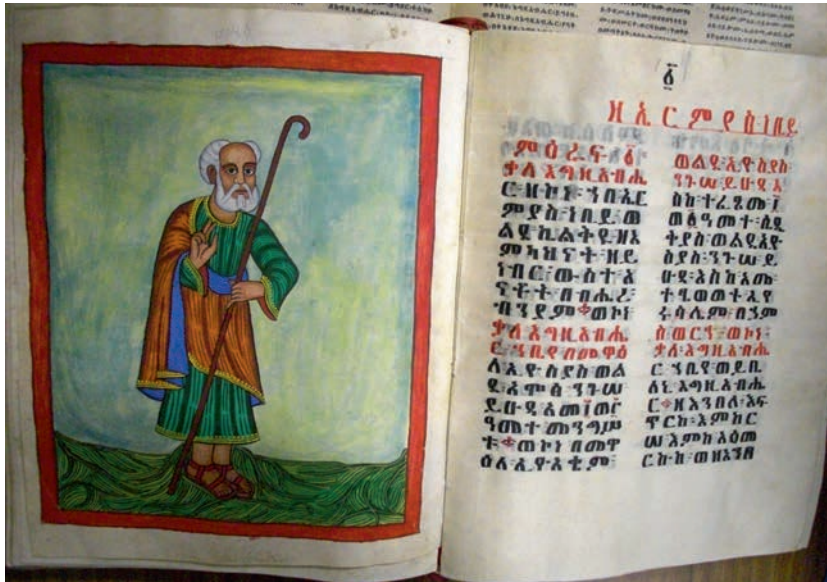 ፩
ዘኤርምያስ፡ነቢይ
ምዕራፍ፡፩
ቃለ፡እግዚአብሔ
ር፡ዘኮነ፡ኀበ፡ኤር
ምያስ፡ነቢይ፡ወ
ልደ፡ኬልቅዩ፡ዝእ
ምካህናት፡ዘይ
ነብር፡ውስተ፡አ
ናቶት፡በብሔረ፡
ብንያም።ወኮነ፡
ቃለ፡እግዚአብሔ
ር፡ኀቤየ፡በመዋዕ
ለ፡ኢዮስያስ፡ወል
ደ፡አሞፅ፡ንጉሠ
ይሁዳ፡አመ፲ወ፫
ዓመተ፡መንግሥ
ቱ።ወኮነ፡በመዋ
ዕለ፡ኢዮአቄም፡
ወልደ፡ኢዮስያስ
ንጉሠ፡ይሁዳ፡እ
ስከ፡ተፈጸመ፡፲
ወ፩ዓመተ፡ሴዴ
ቅያስ፡ወልደ፡ኢዮ
ስያስ፡ንጉሠ፡ይ
ሁዳ፡እስከ፡አመ፡
ተፄወወት፡ኢየ
ሩሳሌም፡በኃም
ስ፡ወርኅ፡ወኮነ፡
ቃለ፡እግዚአብሔ
ር፡ኀቤየ፡ወይቤ
ለኒ፡እግዚአብሔ
ር።ዘእንበለ፡እፍ
ጥርከ፡እምከር
ሠ፡እምከ፡አእመ
ርኩከ፡ወዘእንበ